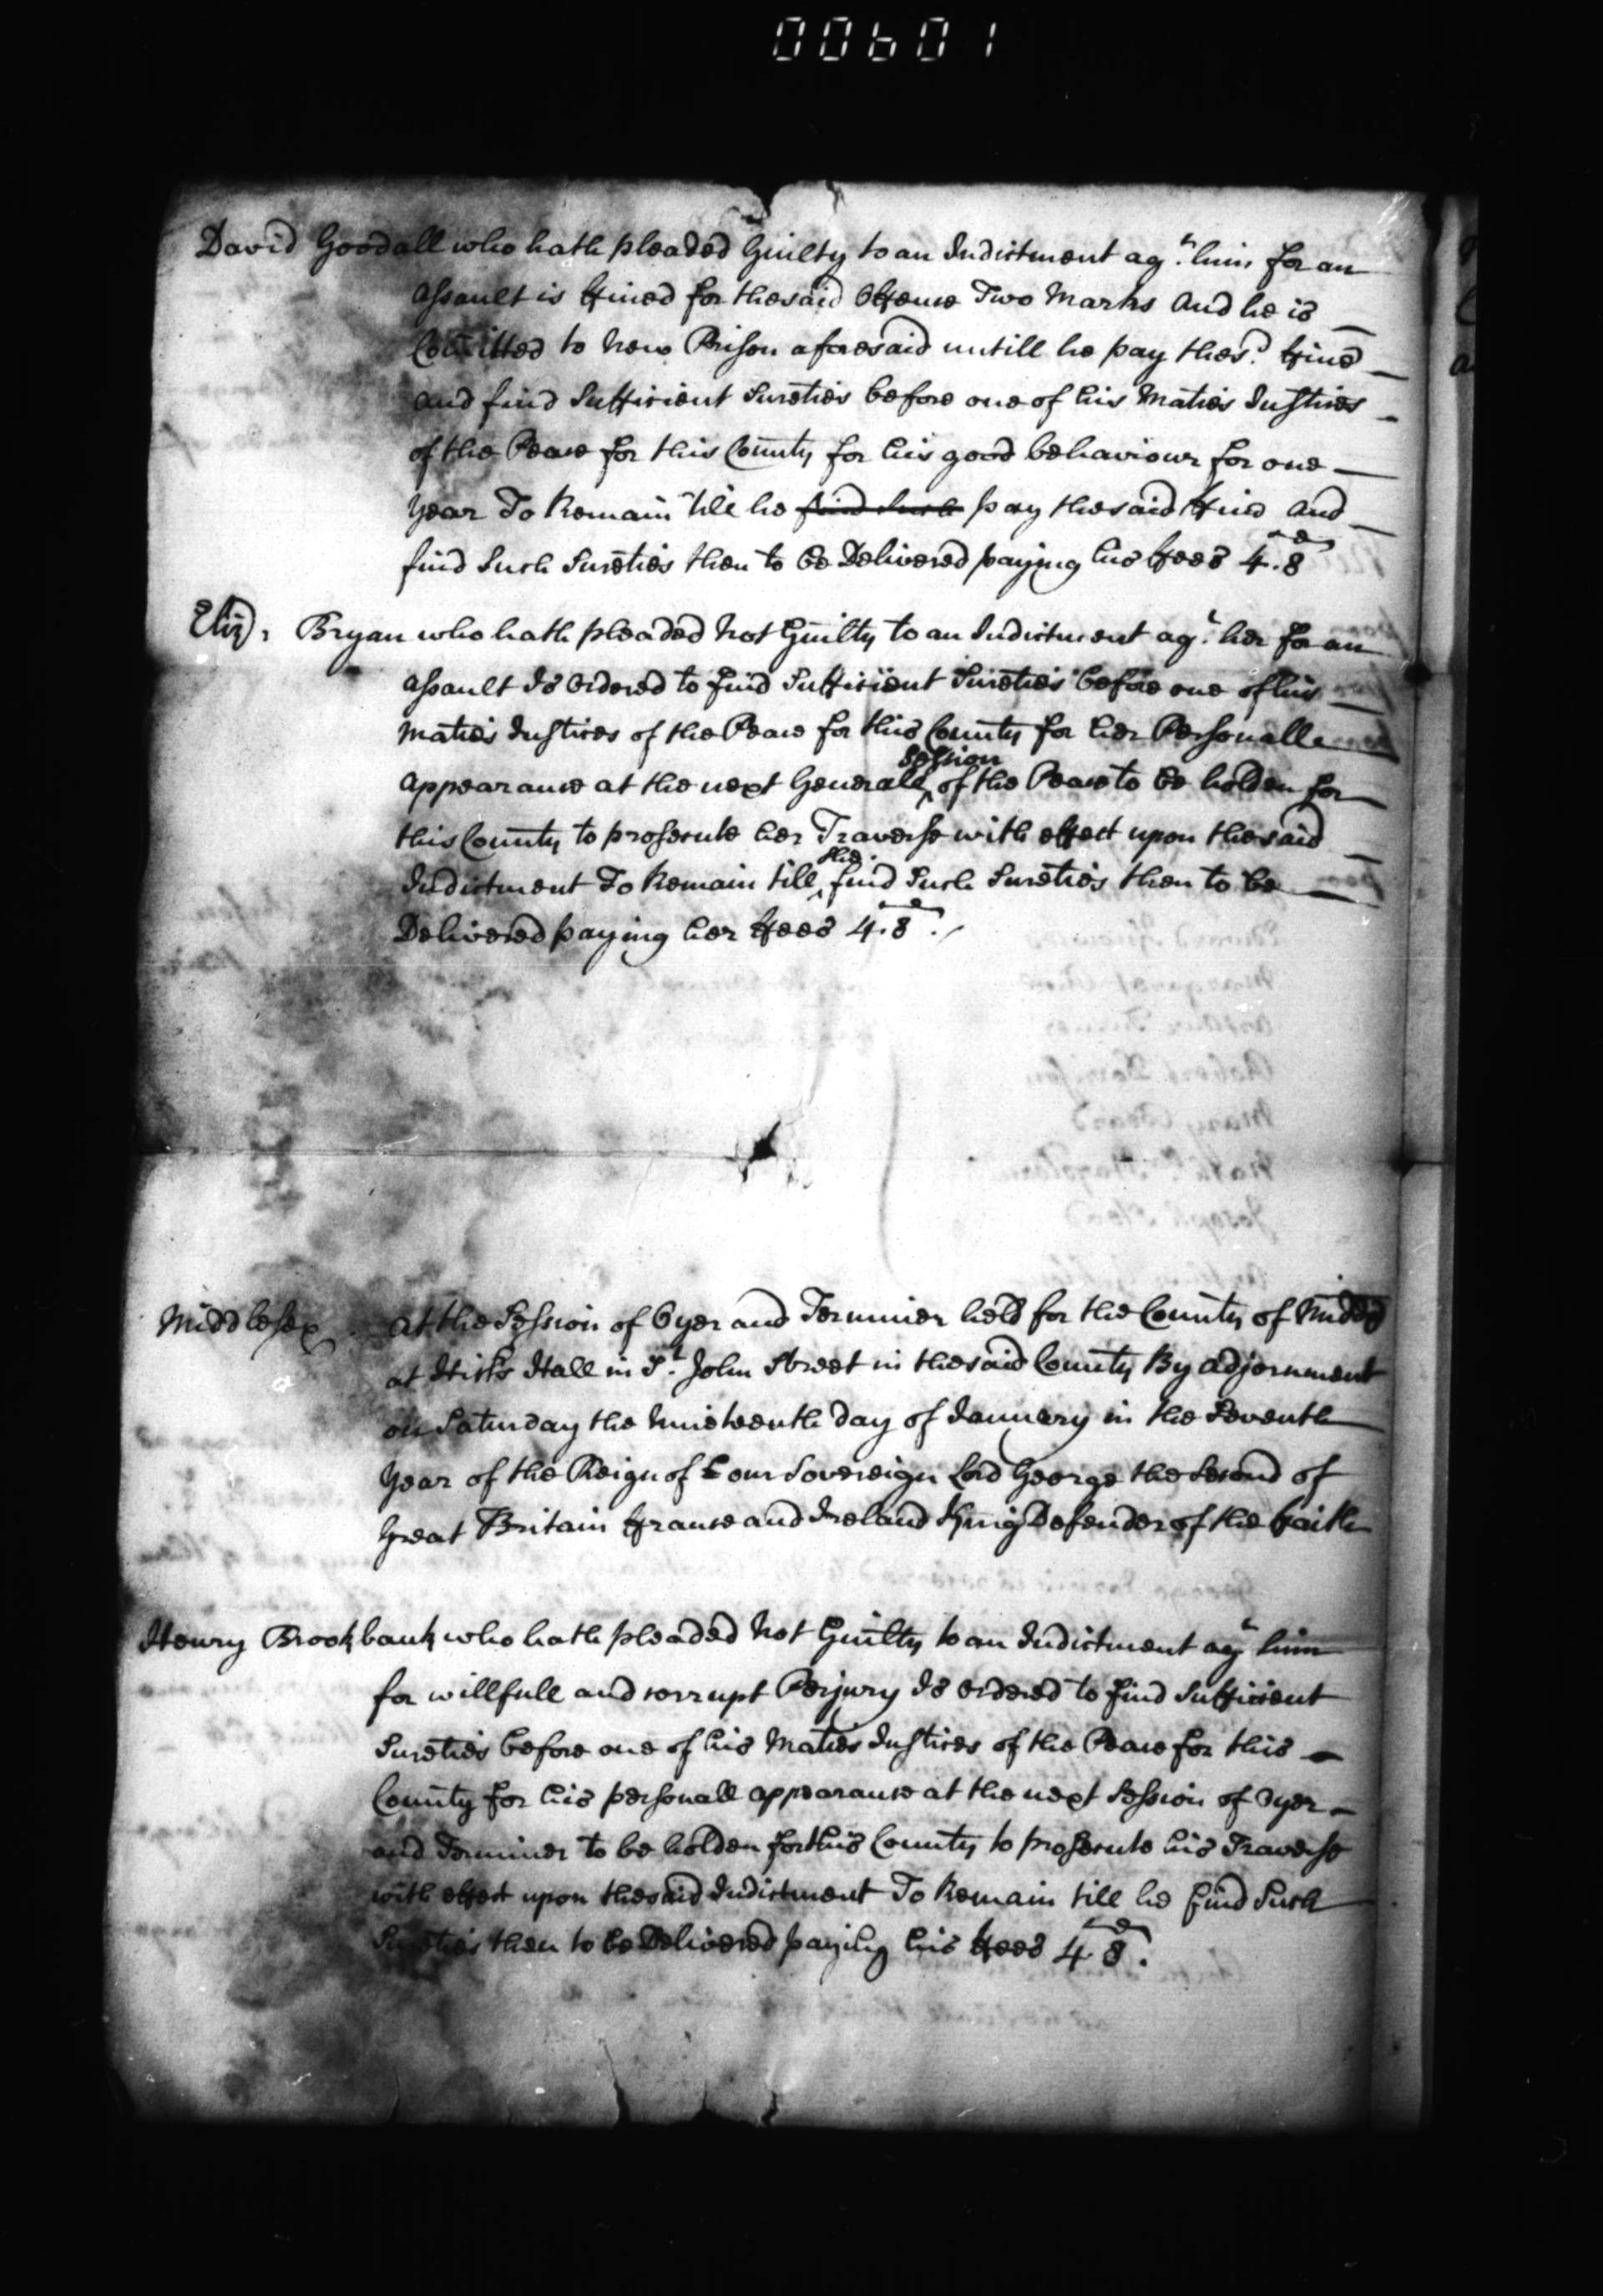 00601
David Goodall who hath pleaded Guilty to an Indictment agt. him for an
Assault is ffined for the said Offence Two Marks And he is
Com̄itted to New Prison aforesaid untill he pay the sd. ffine
and find Sufficient Sureties before one of his Maties Justices
of the Peace for this County for his good behaviour for one
Year To Remain till he find such pay the said ffine And
find Such Sureties then to be Delivered paying his ffees 4.8
Eliz: Bryan who hath pleaded Not Guilty to an Indictment agt. her for an
Assault Is Ordered to find Sufficient Sureties before one of his
Maties Justices of the Peace for this County for her Personall
Session
Appearance at the next Generall of the Peace to be holden for
this County to prosecute her Traverse with effect upon the said
she
Indictment To Remain till find Such Sureties then to be
Delivered paying her ffees 4.8.
Middlesex
At the Session of Oyer and Terminer held for the County of Middx
at Hicks Hall in St. John Street in the said County By Adjornment
on Saturday the Nineteenth day of January in the Seventh
Year of the Reign of our Sovereign Lord George the Second of
Great Britain ffrance and Ireland King Defender of the ffaith
Henry Brookbank who hath pleaded Not Guilty to an Indictment agt him
for willfull and corrupt Perjury Is Ordered to find Sufficient
Sureties before one of his Maties Justices of the Peace for this
County for his personall appearance at the next Session of Oyer
and Terminer to be holden for this County to prosecute his Traverse
with effect upon the said Indictment To Remain till he find Such
Sureties then to be Delivered paying his ffees 4.8.